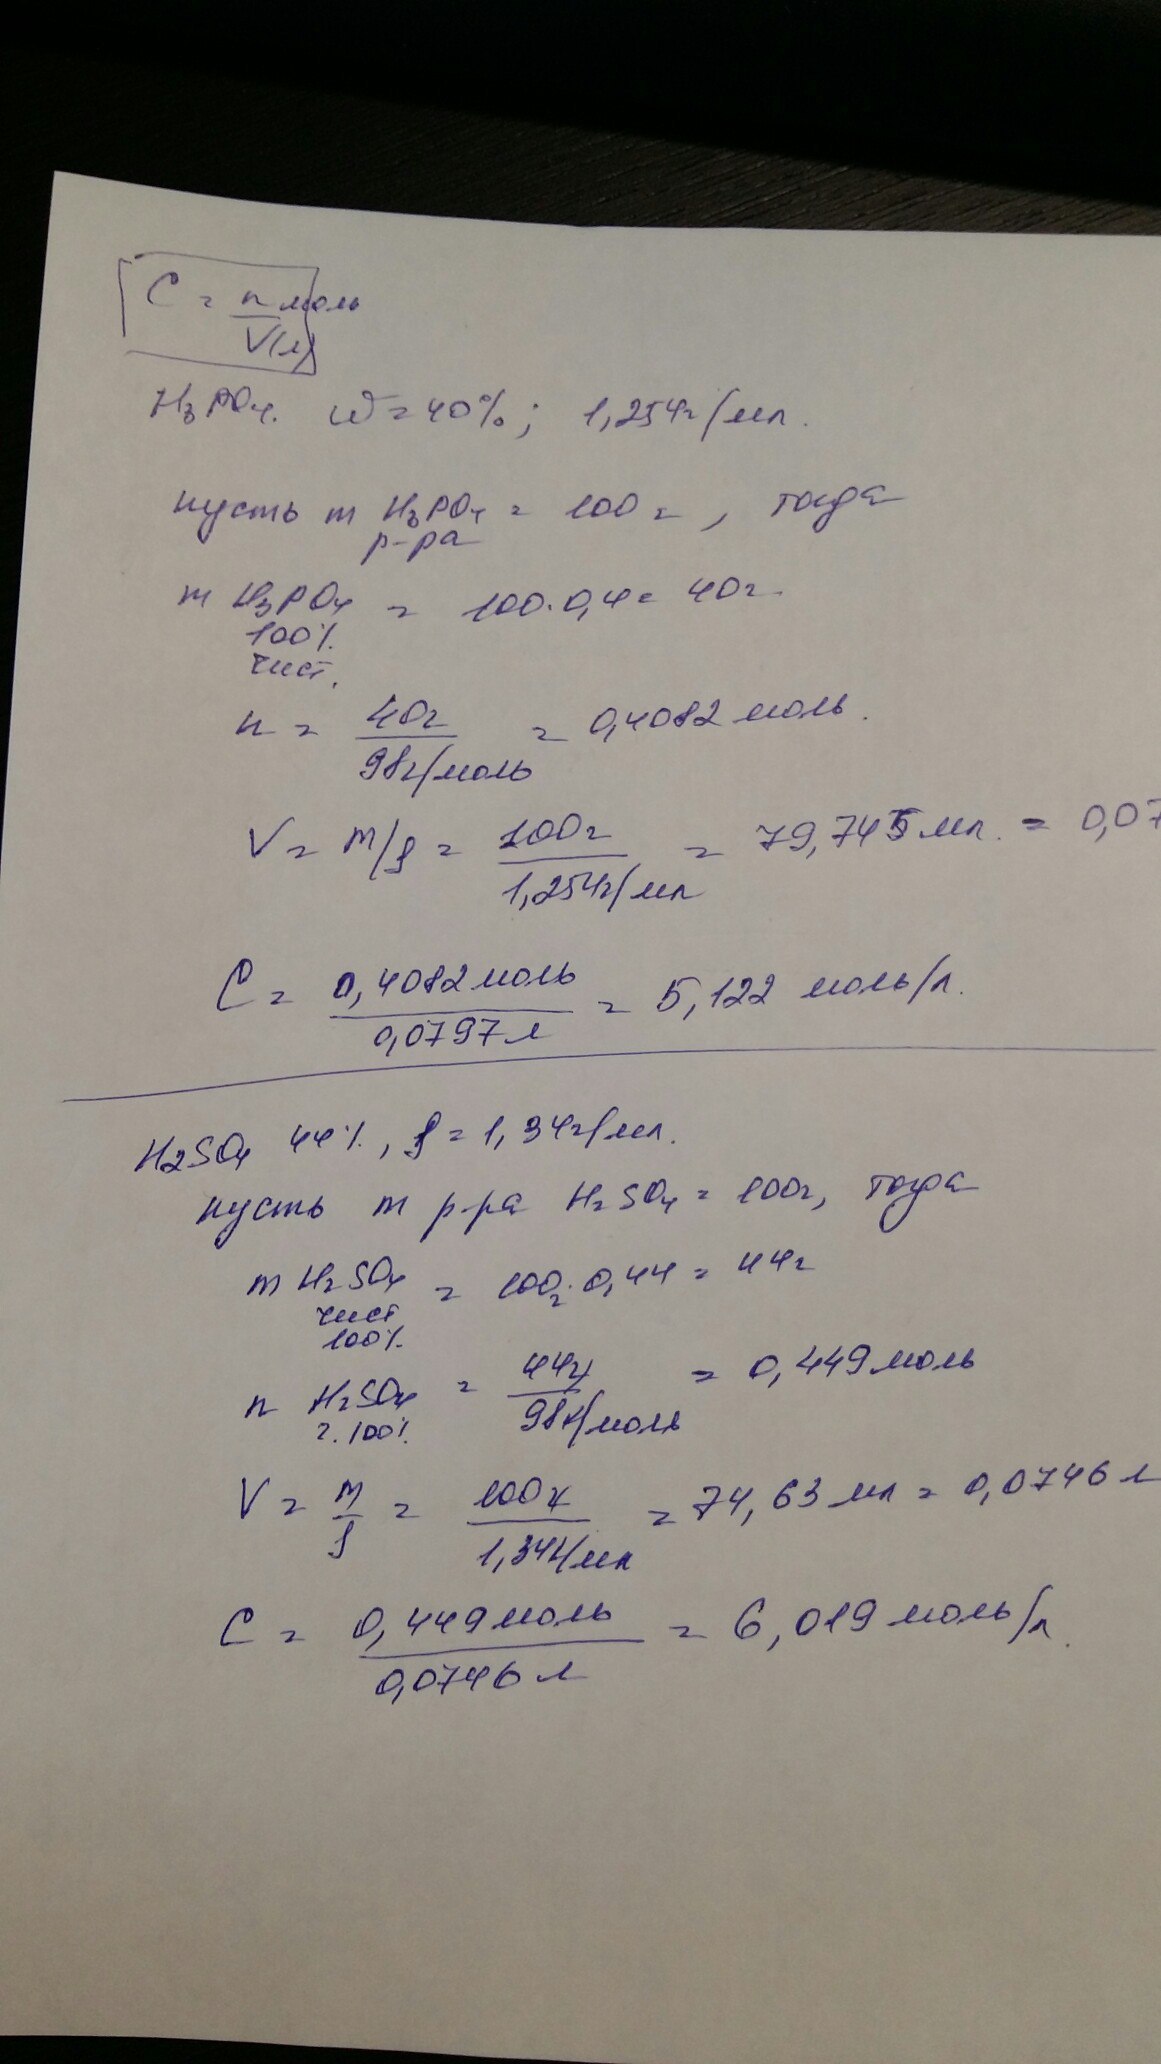 C = n моль
V(л)
H₃PO₄. ω = 40%; 1,254г/мл.
пусть m H₃PO₄ = 100 г, тогда
р-ра
m H₃PO₄ = 100·0,4 = 40г.
100%
чист.
n = 40г / 98г/моль = 0,4082 моль.
V = m/ρ = 100г / 1,254г/мл = 79,745 мл. = 0,07
C = 0,4082 моль / 0,0797 л = 5,122 моль/л.
H₂SO₄ 44%, ρ = 1,34г/мл.
пусть m р-ра H₂SO₄ = 100г, тогда
m H₂SO₄ = 100г·0,44 = 44г
чист
100%
n H₂SO₄ = 44г / 98г/моль = 0,449 моль
ч. 100%
V = m/ρ = 100г / 1,34г/мл = 74,63 мл = 0,0746 л
C = 0,449 моль / 0,0746 л = 6,019 моль/л.